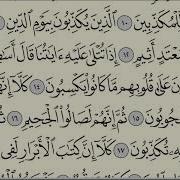 لِّلْمُكَذِّبِينَ ١٠ ٱلَّذِينَ يُكَذِّبُونَ بِيَوْمِ ٱلدِّينِ
مُعْتَدٍ أَثِيمٍ ١٢ إِذَا تُتْلَىٰ عَلَيْهِ ءَايَٰتُنَا قَالَ أَسَٰ
عَلَىٰ قُلُوبِهِم مَّا كَانُوا۟ يَكْسِبُونَ ١٤ كَلَّآ إِنَّهُ
جُوبُونَ ١٥ ثُمَّ إِنَّهُمْ لَصَالُوا۟ ٱلْجَحِيمِ ١٦
بِهِۦ تُكَذِّبُونَ ١٧ كَلَّآ إِنَّ كِتَٰبَ ٱلْأَبْرَارِ لَفِى